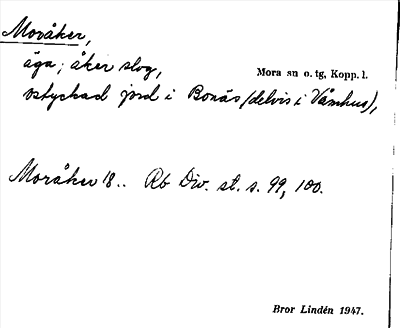 Moråker,
äga; åker slog,
Mora sn o. tg, Kopp. l.
ostyckad jord i Bonäs (delvis i Våmhus),
Moråker 18.. Rb Div. st. s. 99, 100.
Bror Lindén 1947.